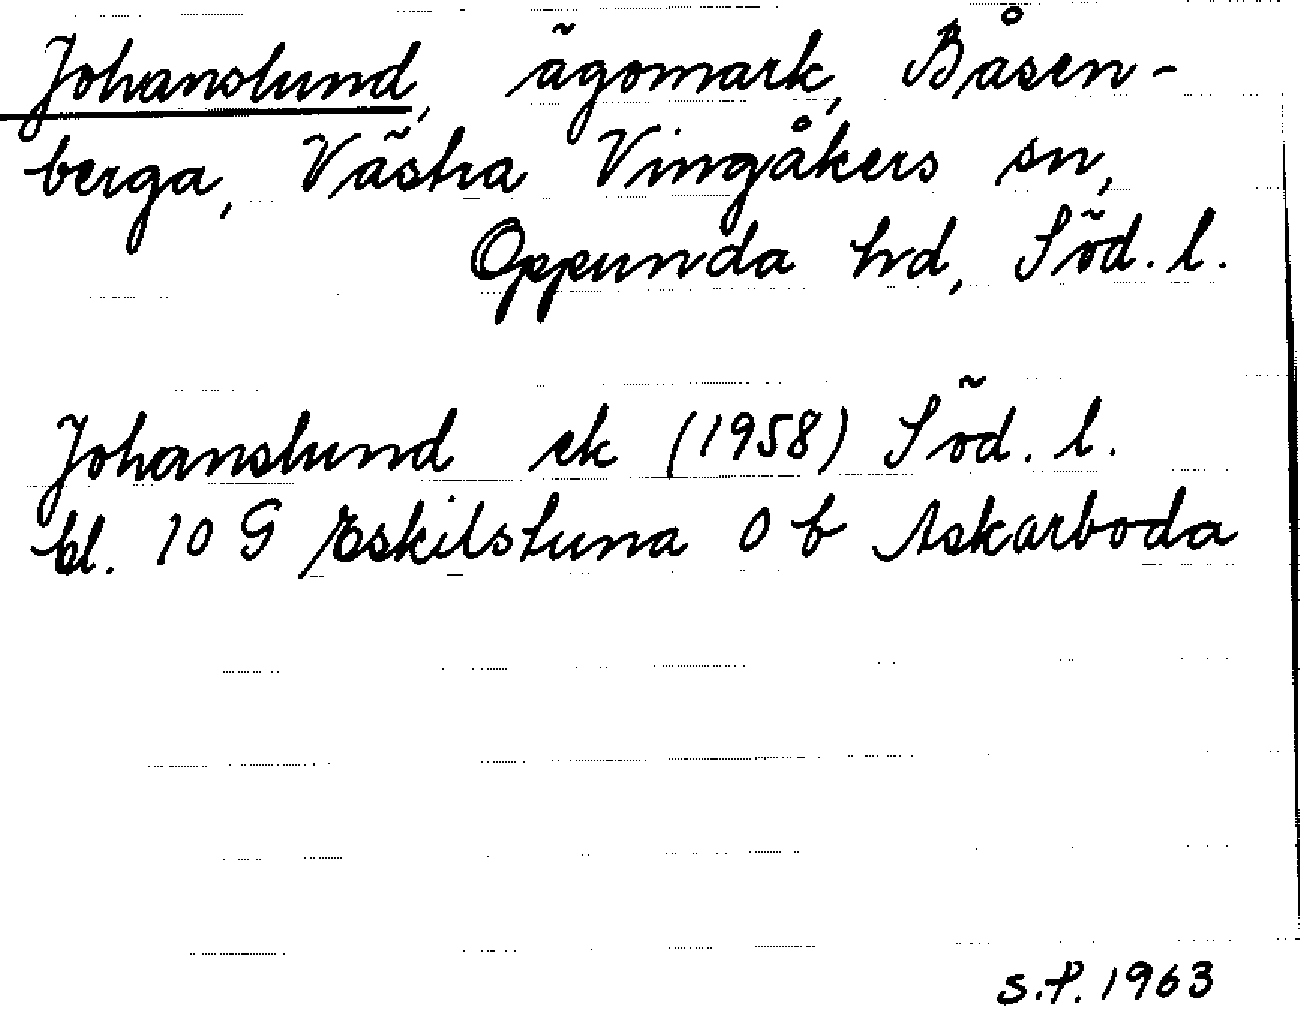 Johanslund, ägomark, Båsen-
berga, Västra Vingåkers sn,
Oppunda hd, Söd. l.
Johanslund ek (1958) Söd. l.
bl. 10 G Eskilstuna 0 b Askarboda
S.P. 1963